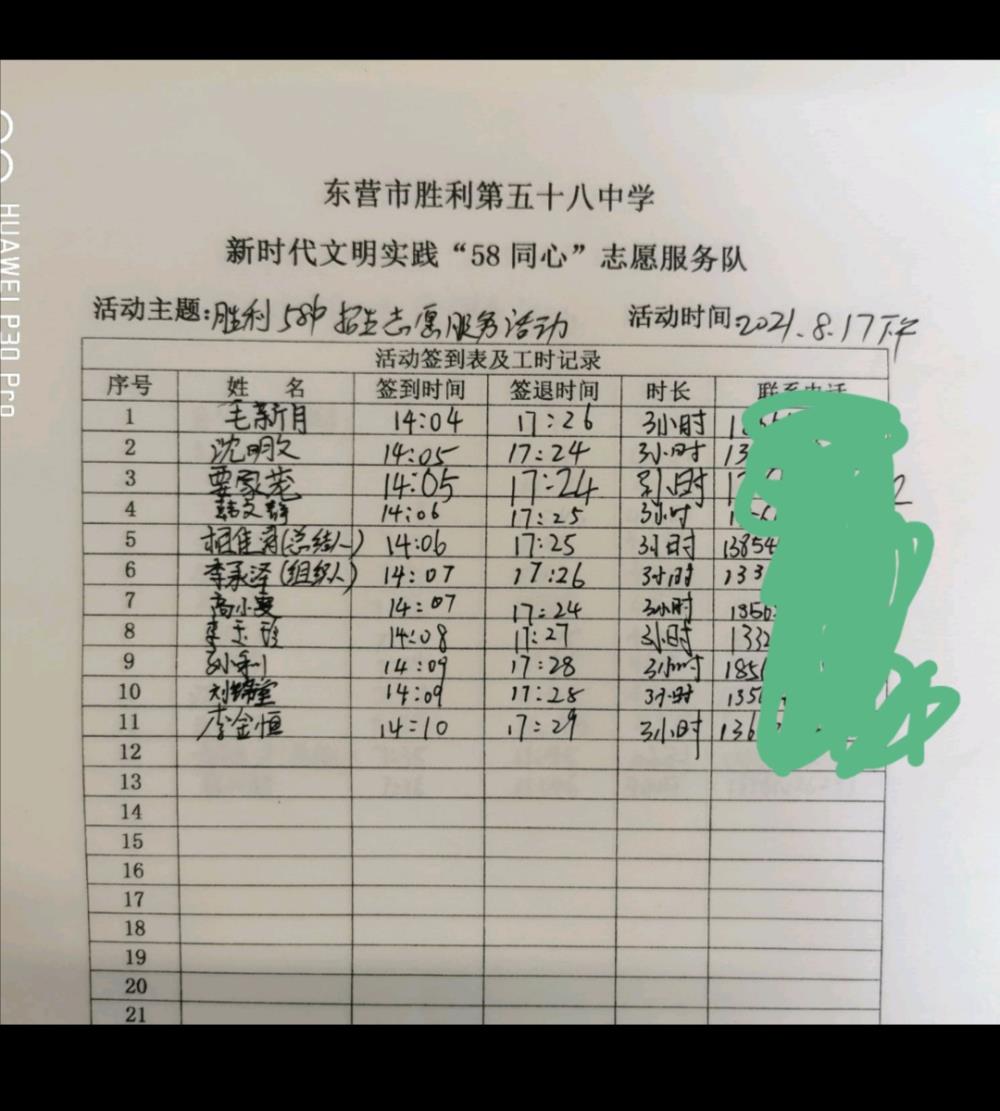 东营市胜利第五十八中学
新时代文明实践“58同心”志愿服务队
活动主题:胜利58中招生志愿服务活动 活动时间:2021.8.17下午
活动签到表及工时记录
序号 姓名 签到时间 签退时间 时长 联系电话
1 毛新月 14:04 17:26 3小时
2 沈明文 14:05 17:24 3小时 13
3 14:05 17:24 3小时
4 韩文静 14:06 17:25 3小时
5 (总结人) 14:06 17:25 3小时 13854
6 李承泽(组织人) 14:07 17:26 3小时 133
7 高小雯 14:07 17:24 3小时 1850
8 李玉珍 14:08 17:27 3小时 1332
9 孙利 14:09 17:28 3小时 185
10 14:09 17:28 3小时 135
11 李金恒 14:10 17:29 3小时 136
12
13
14
15
16
17
18
19
20
21
HUAWEI P30 Pro